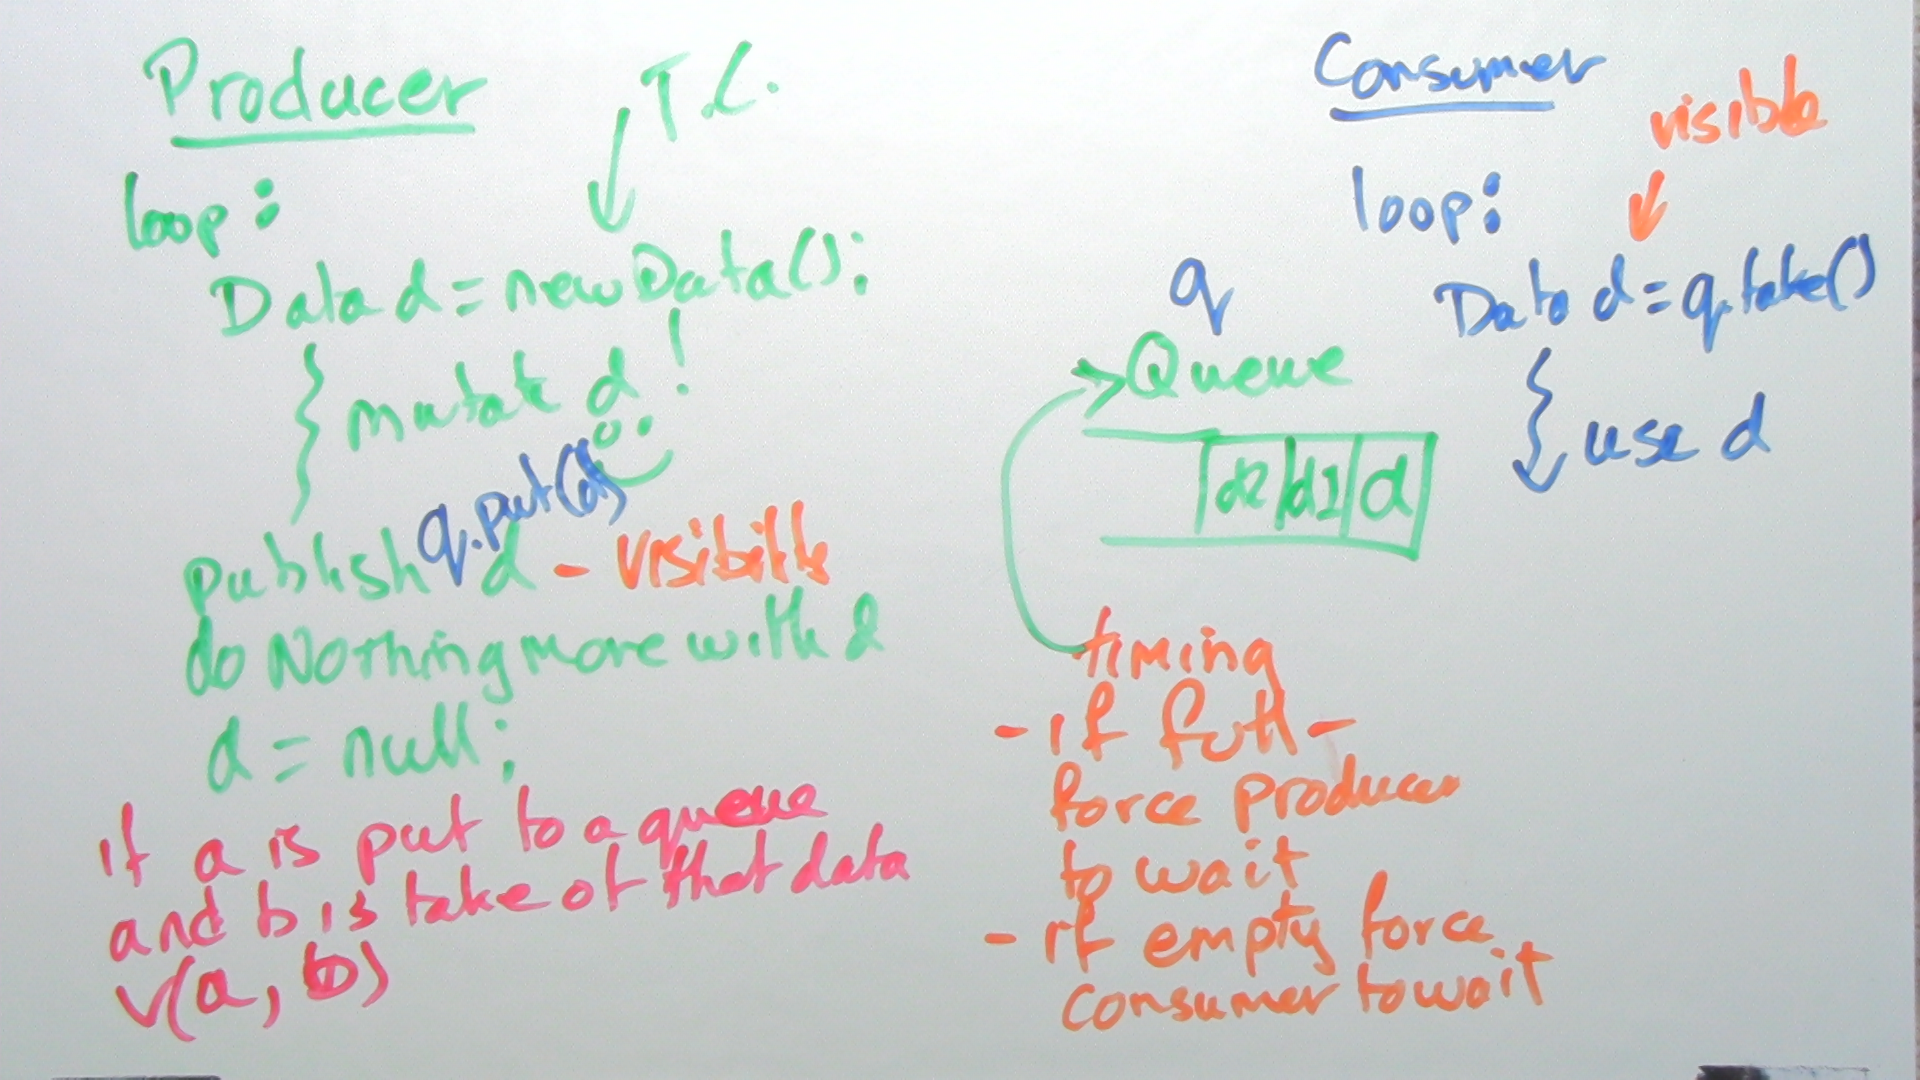 Producer
T.C.
loop:
Data d = new Data();
mutate d !
q.put(d)
publish d - visibility
do Nothing more with d
d = null;
if a is put to a queue
and b is take of that data
v(a, b)
Consumer
visible
loop:
Data d = q.take()
use d
q
Queue
d2 d1 d
timing
- if full -
force producer
to wait
- if empty force
consumer to wait